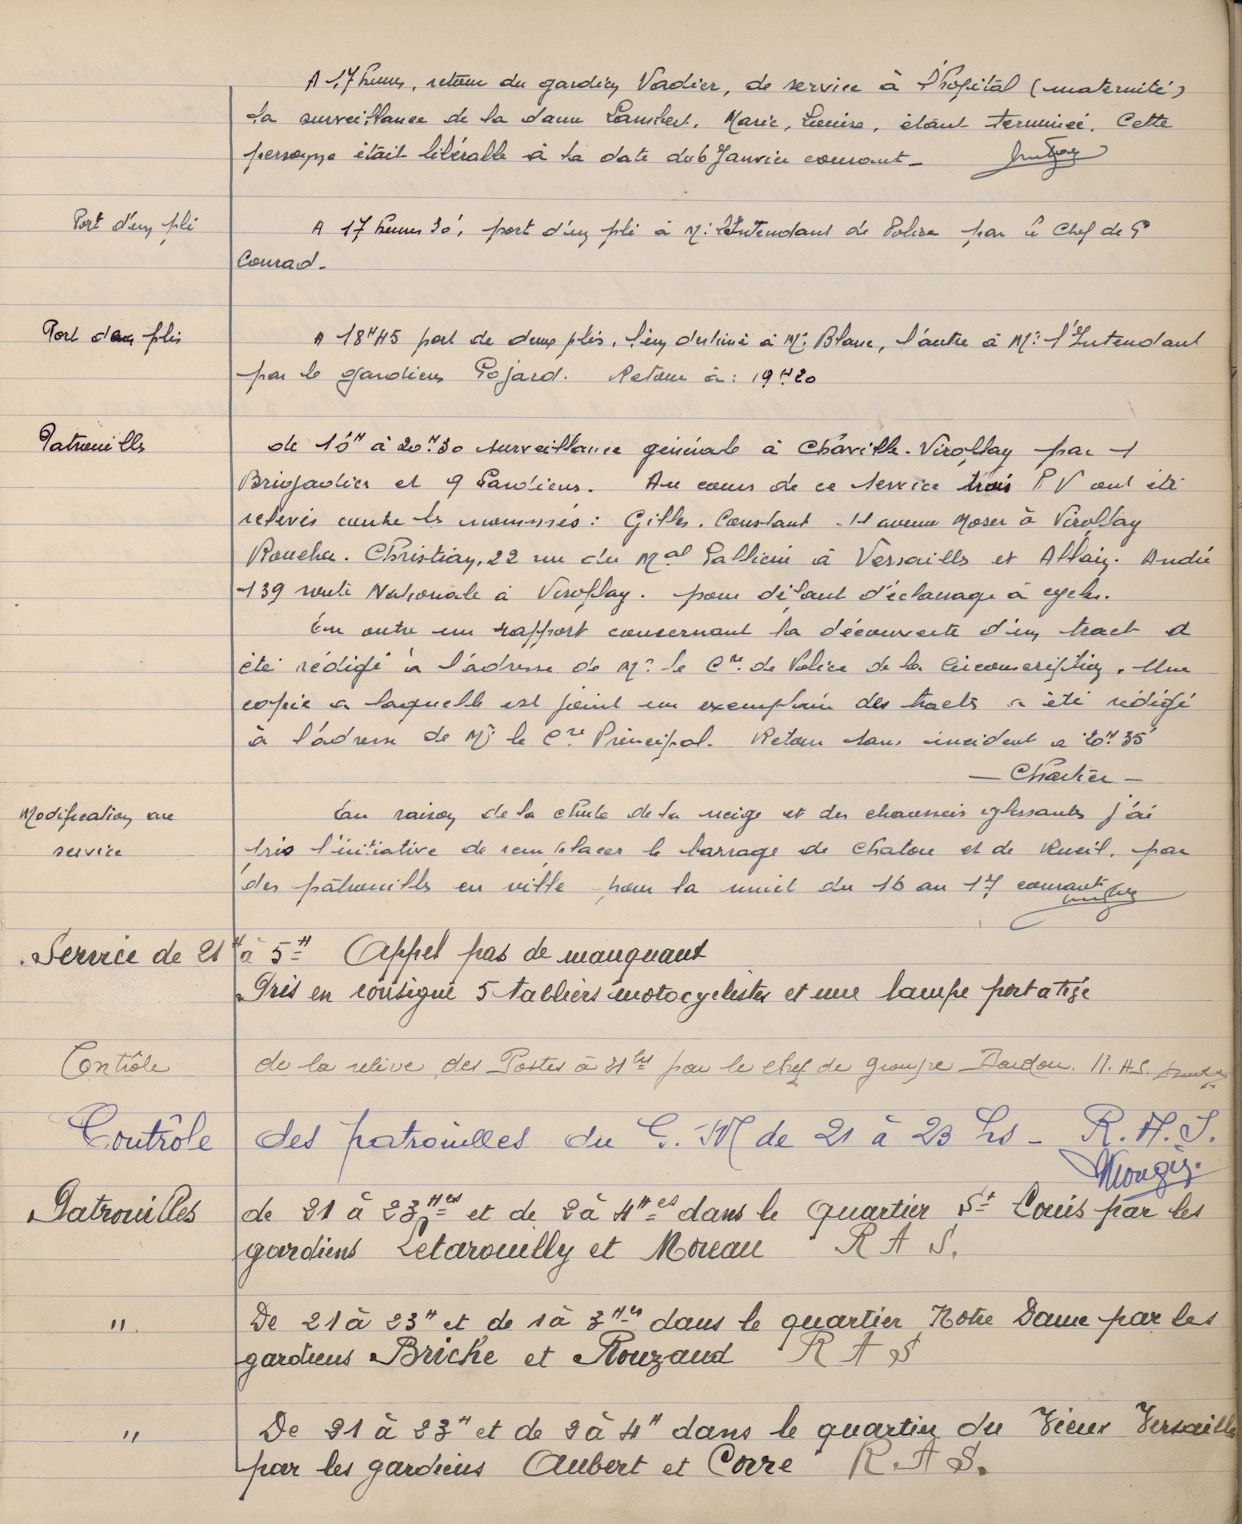 A 17 heures, retour du gardien Vadier, de service à l'hopital (maternité)
la surveillance de la dame Lambert, Marie, Louise, étant terminée. Cette
personne était libérable à la date du 6 Janvier courant_
Port d'un pli
A 17 heures 30', port d'un pli à Mr l'Intendant de Police par le Chef de G
Conrad.
Port deux plis
A 18H45 port de deux plis, l'un destiné à Mr Blanc, l'autre à Mr l'Intendant
par le gardien Pojard. Retour à : 19H20
Patrouilles
de 16H à 20H30 surveillance générale à Chaville-Viroflay par 1
Brigadier et 9 Gardiens. Au cours de ce service trois P V ont été
relevés contre les nommés : Gilles. Constant 11 avenue Moser à Viroflay
Christian, 22 rue du Mal Gallieni à Versailles et Allain. André
139 route Nationale à Viroflay. pour défaut d'éclairage à cycles.
En outre un rapport concernant la découverte d'un tract a
été rédigé à l'adresse de Mr le Cre de Police de la Circonscription. Une
copie a laquelle est joint un exemplaire des tracts a été rédigé
à l'adresse de Mr le Cre Principal. Retour sans incident a 20H35
— Chartier —
Modification au
service
En raison de la chute de la neige et des chaussées glissantes j'ai
pris l'initiative de remplacer le barrage de Chatou et de Rueil, par
des patrouilles en ville pour la nuit du 16 au 17 courant
Service de 21H à 5H Appel pas de manquant
Pris en consigne 5 tabliers motocyclistes et une lampe portative
Contrôle
de la relève des Postes à 21hes par le chef de groupe Bardou. R.A.S.
Contrôle
des patrouilles du G.M de 21 à 23 hs _ R.A.S.
Mongis.
Patrouilles
de 21 à 23Hes et de 2 à 4Hes dans le quartier St Louis par les
gardiens Letarouilly et Moreau R A S.
"
De 21 à 23H et de 1 à 3Hes dans le quartier Notre Dame par les
gardiens Briche et Rouzaud R A S
"
De 21 à 23H et de 2 à 4H dans le quartier du Vieux Versailles
par les gardiens Aubert et Corre R.A S.